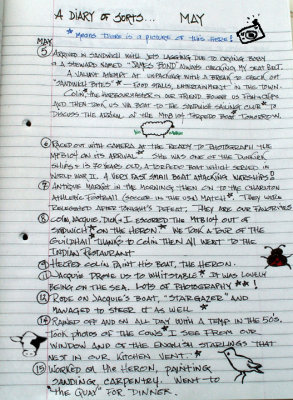 A DIARY OF SORTS... MAY
* MEANS THERE IS A PICTURE OF THIS HERE!
MAY
5 ARRIVED IN SANDWICH WITH JETS LAGGING DUE TO CRYING BABY
& A STEWARD NAMED "JAMES BOND" ALWAYS CHECKING MY SEAT BELT.
A VALIANT ATTEMPT AT UNPACKAGE WITH A BREAK TO CHECK OUT
"SANDWICH BITES"* - FOOD STALLS, ENTERTAINMENT IN THE TOWN.
COLIN* THE HARBOURMASTER OR TRULY BOUGHT US FISH N CHIPS
AND THEN TOOK US VIA BOAT TO THE SANDWICH SAILING CLUB* TO
DISCUSS THE ARRIVAL OF THE MTB 102 TORPEDO BOAT TOMORROW.
6 RACED OUT WITH CAMERA AT THE READY TO PHOTOGRAPH THE
ON ITS ARRIVAL* SHE WAS ONE OF THE DUNKIRK
SHIPS & IS 70 YEARS OLD, A TORPEDO BOAT WHICH SERVED IN
WORLD WAR II. A VERY FAST SMALL BOAT ATTACKING WARSHIPS!
7 ANTIQUE MARKET IN THE MORNING THEN ON TO THE CHARLTON
ATHLETIC FOOTBALL (SOCCER IN THE USA) MATCH*. THEY WERE
RELEGATED AFTER TONIGHT'S DEFEAT. THEY ARE OUR FAVORITES
8 COLIN, JACQUIE, DICK & I ESCORTED THE OUT OF
SANDWICH* ON THE HERON* WE TOOK A TOUR OF THE
GUILDHALL THANKS TO COLIN THEN ALL WENT TO THE
INDIAN RESTAURANT
9 HELPED COLIN PAINT HIS BOAT, THE HERON.
11 JACQUIE DROVE US TO WHITSTABLE* IT WAS LOVELY
BEING ON THE SEA. LOTS OF PHOTOGRAPHY ***!
12 RODE ON JACQUIE'S BOAT, "STARGAZER" AND
MANAGED TO STEER IT AS WELL *
14 RAINED OFF AND ON ALL DAY WITH A TEMP IN THE 50'S.
TOOK PHOTOS OF THE COWS* I SEE FROM OUR
WINDOW AND OF THE ENGLISH STARLINGS THAT
NEST IN OUR KITCHEN VENT.*
15 WORKED ON THE HERON, PAINTING
SANDING, CARPENTRY. WENT TO
"THE QUAY" FOR DINNER.